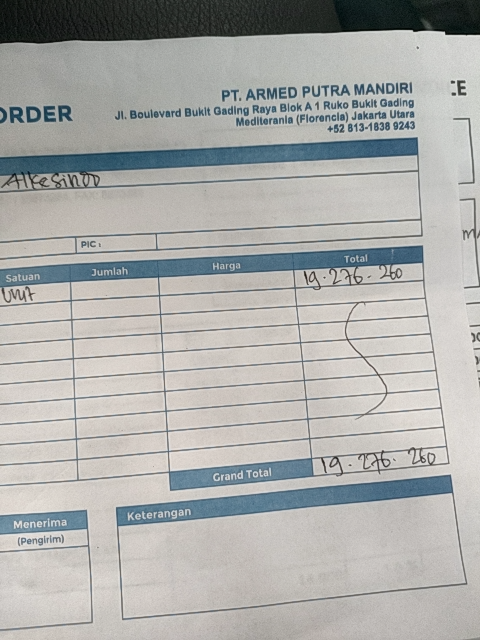 ORDER
PT. ARMED PUTRA MANDIRI
Jl. Boulevard Bukit Gading Raya Blok A 1 Ruko Bukit Gading
Mediterania (Florencia) Jakarta Utara
+52 813-1838 9243
Alkesindo
PIC :
Satuan Jumlah Harga Total
Unit 19.276.260
Grand Total 19.276.260
Menerima
(Pengirim)
Keterangan